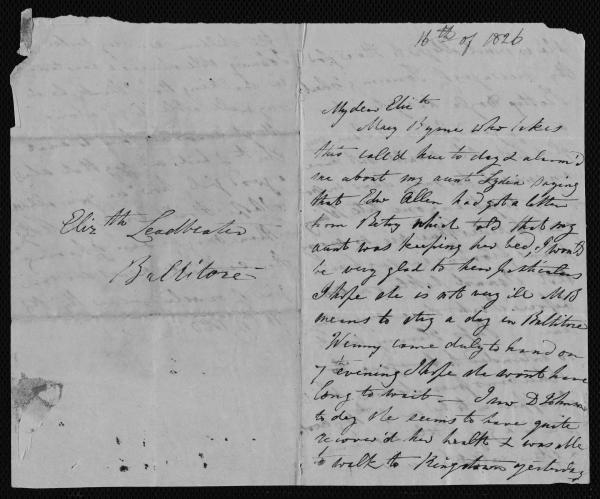 Elizth Leadbeater
Ballitore
16th of 1826
My dear Elizth
Mary Byrne who takes
this call'd here to day & alarm'd
me about my aunt Lydia saying
that Edw Allen had got a letter
from Betsy which told that my
aunt was keeping her bed, I would
be very glad to hear particulars
I hope she is not very ill MB
means to stay a day in Ballitore
Winny came duly to hand on
7th evening I hope she wont have
long to wait — I saw D Johnson
to day she seems to have quite
recover'd her health & was able
to walk to Kingstown yesterday